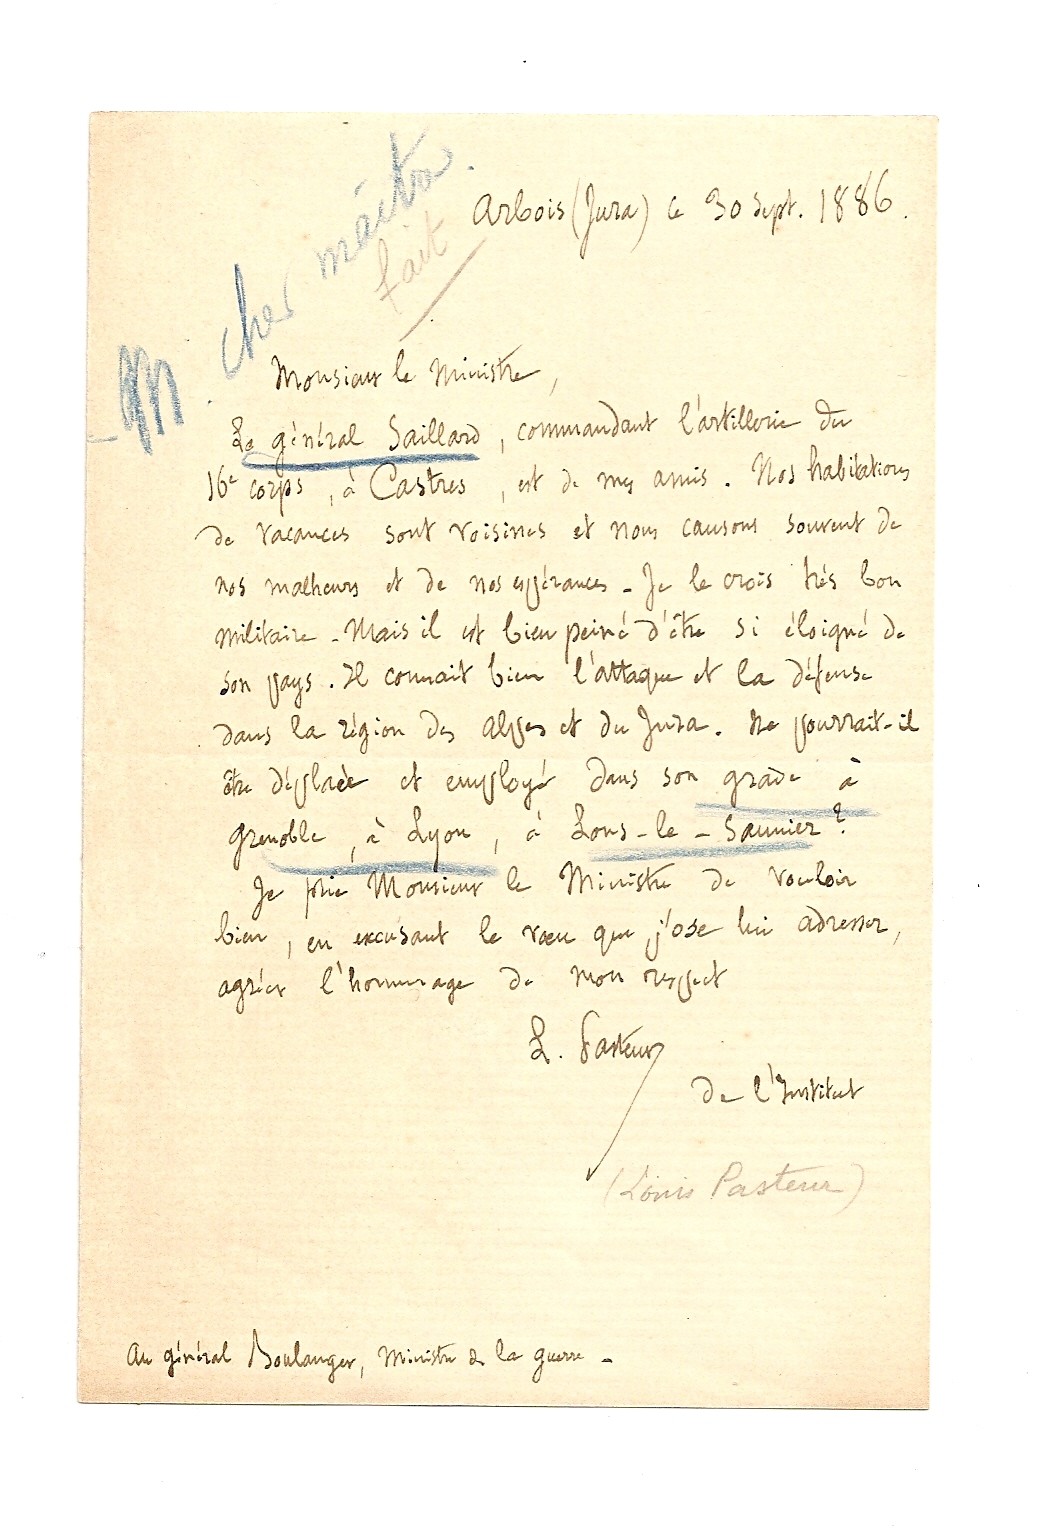 M. cher maître.
fait
Arbois (Jura) le 30 Sept. 1886.
Monsieur le Ministre,
Le général Saillard, commandant l'artillerie du
16e corps, à Castres, est de mes amis. Nos habitations
de vacances sont voisines et nous causons souvent de
nos malheurs et de nos espérances - Je le crois très bon
militaire - Mais il est bien peiné d'être si éloigné de
son pays. Il connait bien l'attaque et la défense
dans la région des Alpes et du Jura. Ne pourrait-il
être déplacé et employé dans son grade à
Grenoble, à Lyon, à Lons-le-Saunier?
Je prie Monsieur le Ministre de vouloir
bien, en excusant le vœu que j'ose lui adresser,
agréer l'hommage de mon respect
L. Pasteur
de l'Institut
(Louis Pasteur)
Au général Boulanger, Ministre de la guerre -